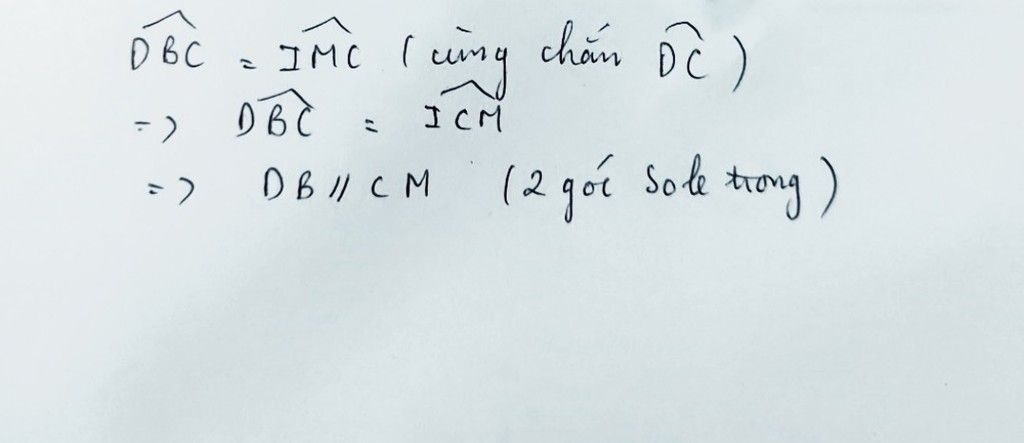 DBC = IMC (cùng chắn DC)
=> DBC = ICM
=> DB // CM (2 góc sole trong)